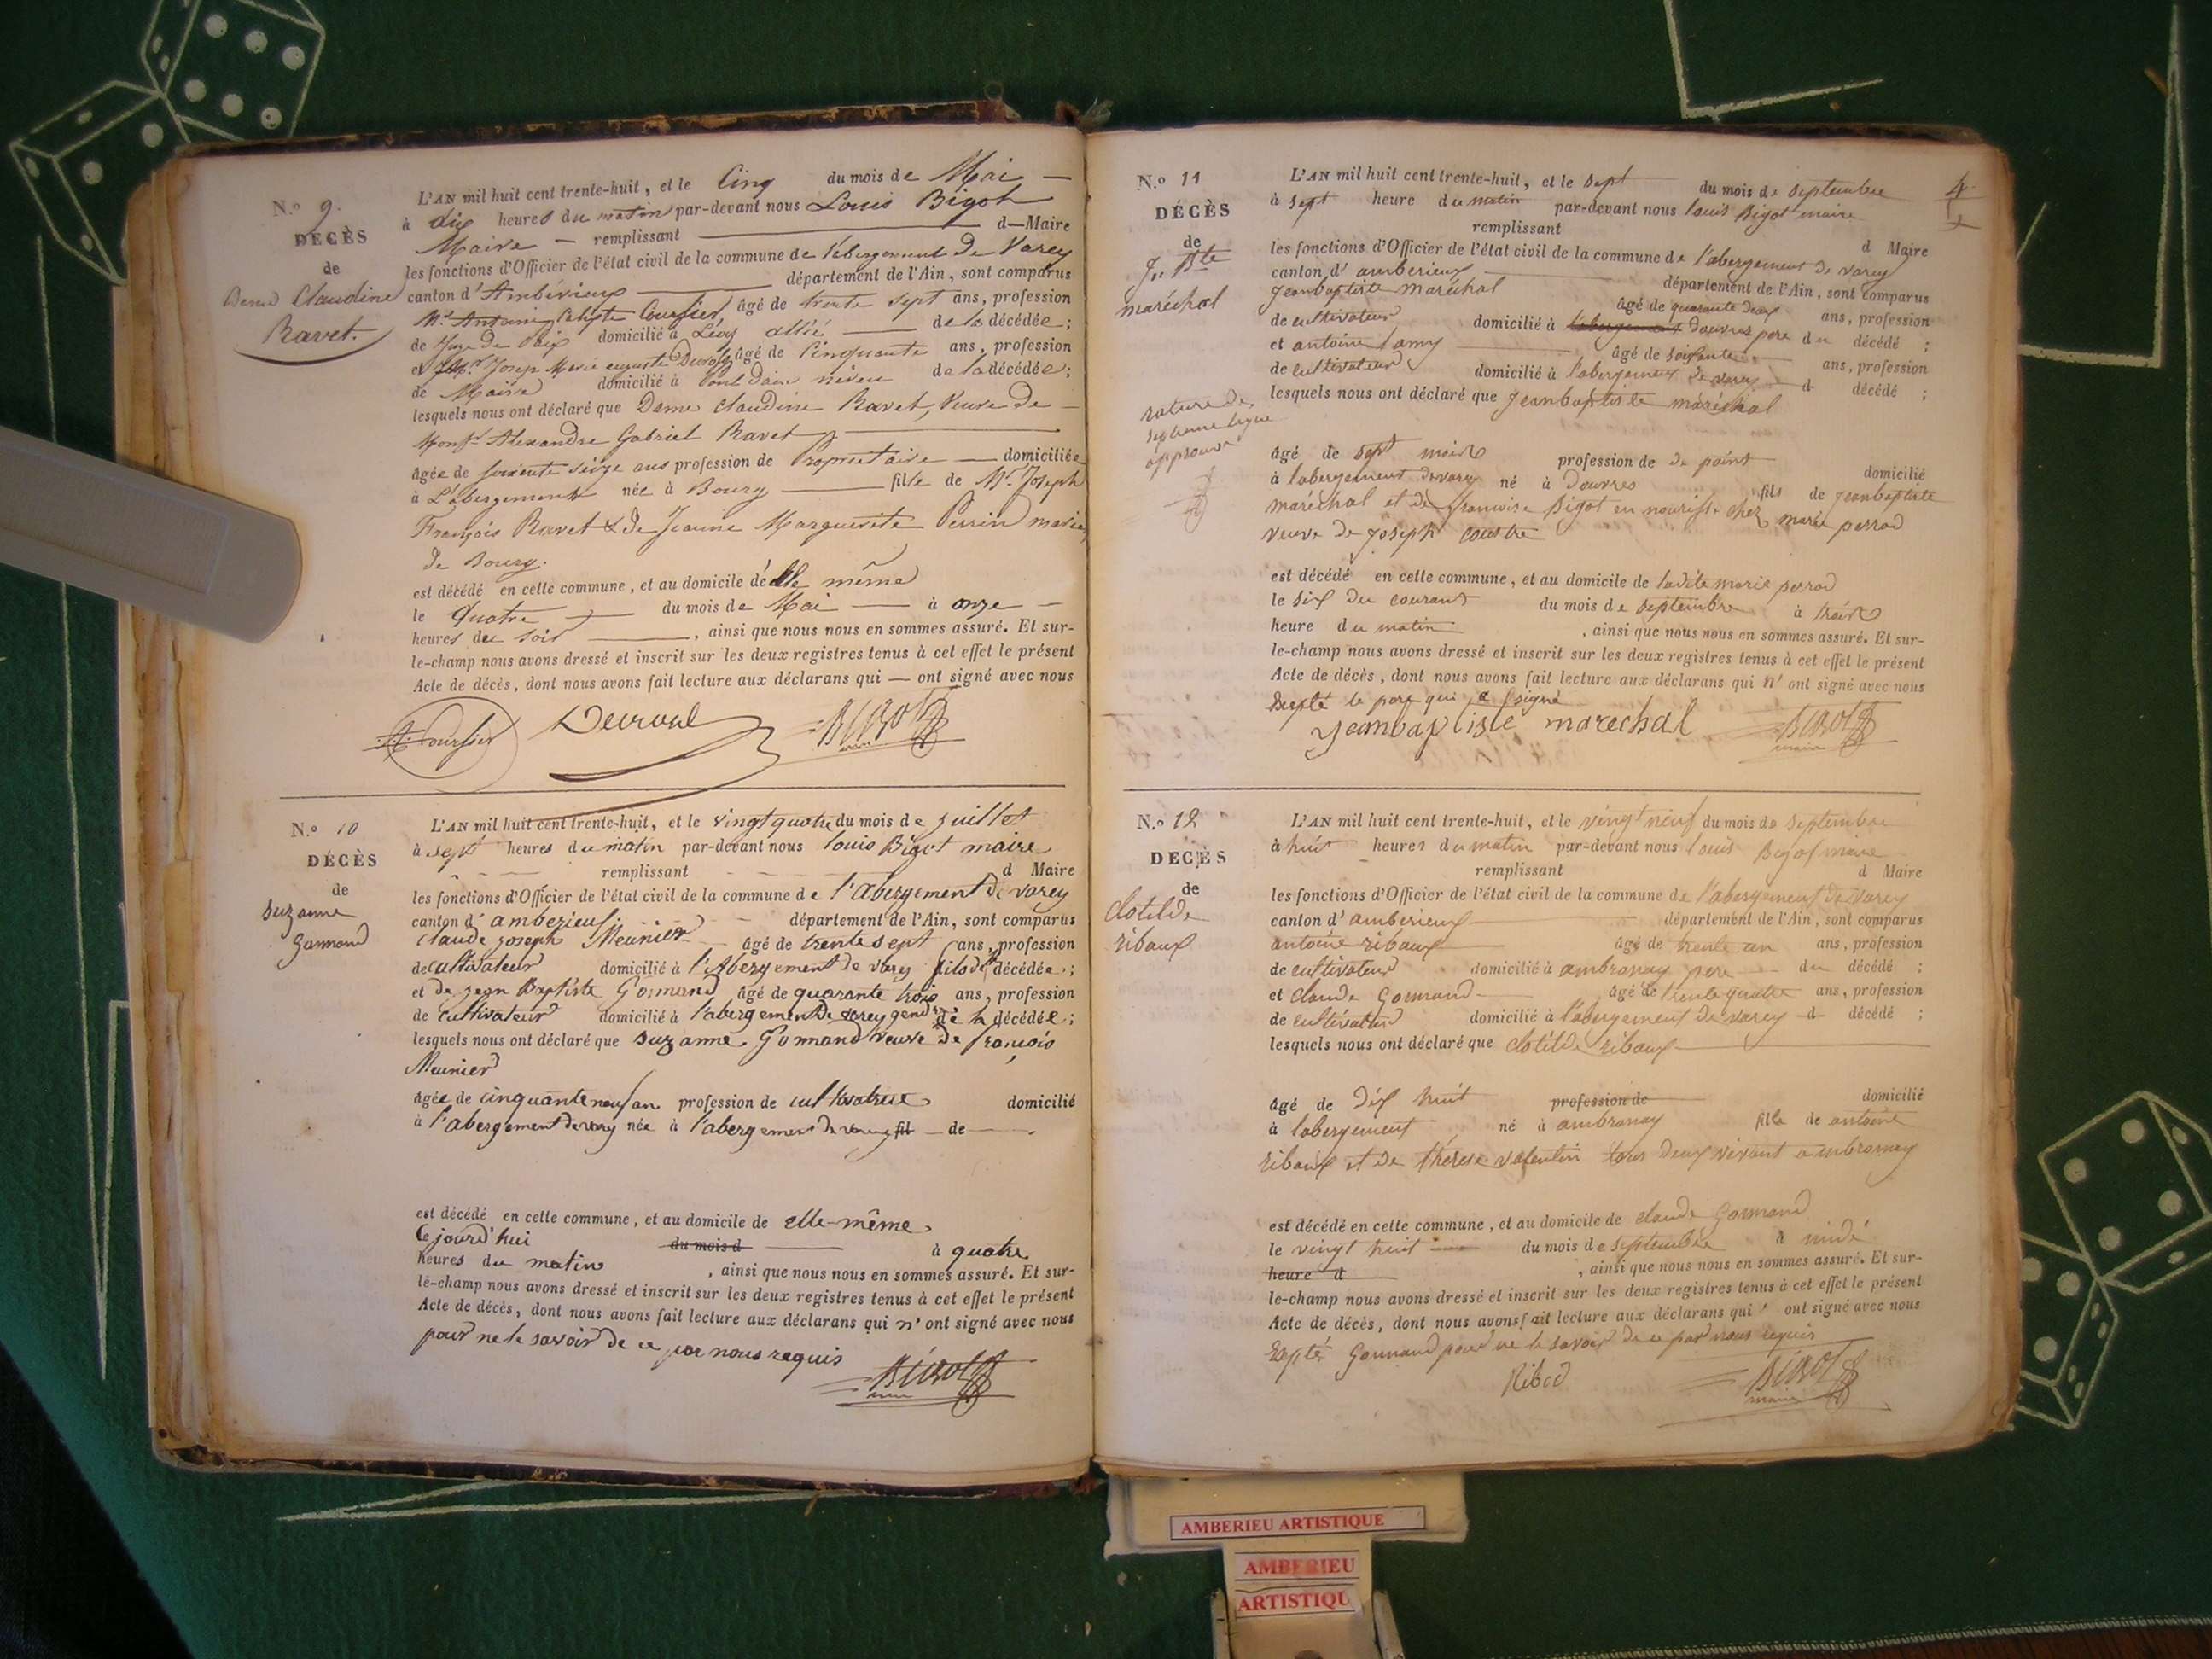 N.º 9.
DÉCÈS
de
Claudine
Ravet.
L'AN mil huit cent trente-huit, et le Cinq du mois de Mai
à dix heures du matin par-devant nous Louis Bigot
Maire — remplissant — d—Maire
les fonctions d'Officier de l'état civil de la commune de l'abergement de Varey
canton d'Ambérieux — département de l'Ain, sont comparus
Mr. Antoine Courtier, âgé de trente sept ans, profession
de Juge de Paix domicilié à allié — de la décédée;
et Joseph Marie auguste Durval âgé de Cinquante ans, profession
de Maire domicilié à Pont d'ain neveu de la décédée;
lesquels nous ont déclaré que Dame Claudine Ravet, Veuve de
Alexandre Gabriel Ravet
âgée de soixante seize ans profession de Propriétaire — domiciliée
à L'abergement née à Bourg — fille de Mr. Joseph
François Ravet & de Jeanne Marguerite Perrin
de Bourg.
est décédé en cette commune, et au domicile d'elle même
le Quatre du mois de Mai — à onze —
heures du soir —, ainsi que nous nous en sommes assuré. Et sur-
le-champ nous avons dressé et inscrit sur les deux registres tenus à cet effet le présent
Acte de décès, dont nous avons fait lecture aux déclarans qui — ont signé avec nous
Durval BIGOT
N.º 10
DÉCÈS
de
suzanne
Gormand
L'AN mil huit cent trente-huit, et le vingt quatre du mois de juillet
à sept heures du matin par-devant nous louis Bigot maire
remplissant d Maire
les fonctions d'Officier de l'état civil de la commune de l'abergement de varey
canton d'amberieux département de l'Ain, sont comparus
claude joseph Meunier âgé de trente sept ans, profession
de cultivateur domicilié à l'Abergement de varey fils de décédée;
et de jean Baptiste Gormand âgé de quarante trois ans, profession
de cultivateur domicilié à l'abergement de varey gendre de la décédée;
lesquels nous ont déclaré que suzanne Gormand veuve de françois
Meunier
âgée de cinquante neuf an profession de cultivatrice domicilié
à l'abergement de varey née à l'abergement de varey fil — de —
est décédé en cette commune, et au domicile de elle-même
Cejourd'hui du mois d à quatre
heures du matin, ainsi que nous nous en sommes assuré. Et sur-
le-champ nous avons dressé et inscrit sur les deux registres tenus à cet effet le présent
Acte de décès, dont nous avons fait lecture aux déclarans qui n'ont signé avec nous
pour ne le savoir de ce par nous requis
BIGOT
N.º 11
DÉCÈS
de
Jn Bte
maréchal
rature de
septieme ligne
approuvé
L'AN mil huit cent trente-huit, et le sept du mois de septembre
à sept heure du matin par-devant nous louis Bigot maire
remplissant d Maire
les fonctions d'Officier de l'état civil de la commune de l'abergement de varey
canton d'amberieux département de l'Ain, sont comparus
jeanbaptiste maréchal âgé de quarante deux ans, profession
de cultivateur domicilié à douvres pere du décédé;
et antoine lamy âgé de soixante ans, profession
de cultivateur domicilié à l'abergement de varey d décédé;
lesquels nous ont déclaré que jeanbaptiste maréchal
âgé de sept mois profession de de point domicilié
à l'abergement de varey né à douvres fils de jeanbaptiste
maréchal et de françoise Bigot en nourisse chez marie perrod
veuve de joseph coustre
est décédé en cette commune, et au domicile de ladite marie perrod
le six du courant du mois de septembre à trois
heure du matin, ainsi que nous nous en sommes assuré. Et sur-
le-champ nous avons dressé et inscrit sur les deux registres tenus à cet effet le présent
Acte de décès, dont nous avons fait lecture aux déclarans qui n'ont signé avec nous
Exepté le pere qui a signé
jeanbaptiste marechal BIGOT
maire
N.º 12
DECÈS
de
clotilde
ribaux
L'AN mil huit cent trente-huit, et le vingt neuf du mois de septembre
à huit heures du matin par-devant nous louis Bigot maire
remplissant d Maire
les fonctions d'Officier de l'état civil de la commune de l'abergement de varey
canton d'amberieux — département de l'Ain, sont comparus
antoine ribaux âgé de trente an ans, profession
de cultivateur domicilié à ambronay pere du décédé;
et claude Gormand âgé de trente quatre ans, profession
de cultivateur domicilié à l'abergement de varey d décédé;
lesquels nous ont déclaré que clotilde ribaux
âgé de dix huit profession de domicilié
à labergement né à ambronay fille de antoine
ribaux et de thérèse valentin tous deux vivant a ambronay
est décédé en cette commune, et au domicile de claude Gormand
le vingt huit du mois de septembre à midi
heure d, ainsi que nous nous en sommes assuré. Et sur-
le-champ nous avons dressé et inscrit sur les deux registres tenus à cet effet le présent
Acte de décès, dont nous avons fait lecture aux déclarans qui ont signé avec nous
Exepté Gormand pour ne le savoir de ce par nous requis
Ribod BIGOT
maire
AMBERIEU ARTISTIQUE
AMBERIEU
ARTISTIQU